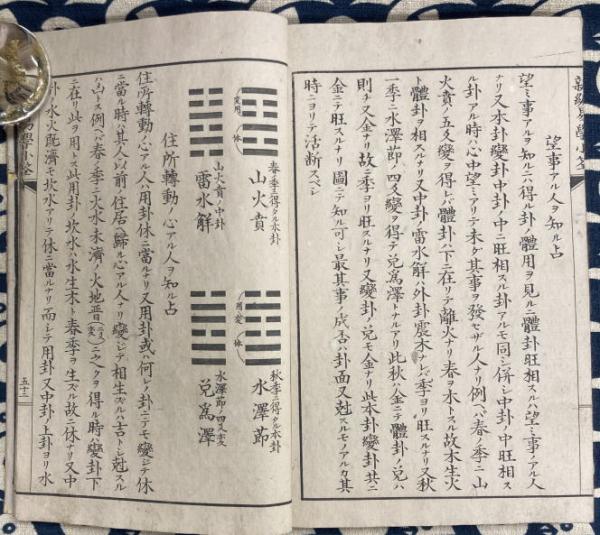 望事アル人ヲ知ル占
望ミ事アルヲ知ルニ得ル卦ノ體用ヲ見ルニ體卦旺相スルハ望ミ事ノアル人
ナリ又本卦變卦中卦ノ中ニ旺相スル卦アルモ同シ併シ中卦ノ中旺相ス
ル卦アル時ハ心中望ミアリテ未タ其事ヲ發セザル人ナリ例ヘバ春ノ季ニ山
火賁ノ五爻變ヲ得レバ體卦ハ下ニ在リテ離火ナリ春ヲ木トスル故木生火
ト體卦ヲ相スルナリ又中卦ノ雷水解ハ外卦震木ナレバ季ヨリ旺スルナリ又秋
ノ季ニ水澤節ノ四爻變ヲ得テ兌爲澤トナルアリ此秋ハ金ニテ體卦ノ兌ハ
則チ又金ナリ故ニ季ヨリ旺スルナリ又變卦ノ兌モ金ナリ此本卦變卦共ニ
金ニテ旺スルナリ圖ニテ知ル可シ最其事ノ成否ハ卦面又尅スルモノアルカ其
時ニヨリテ活斷スベシ
春ノ季ニ得タル本卦
山火賁
變用
體
山火賁ノ中卦
雷水解
秋ノ季ニ得タル本卦
水澤節
用變
體
水澤節ノ四爻變
兌爲澤
住所轉動ノ心アル人ヲ知ル占
住所轉動ノ心アル人ハ用卦休ニ當ルナリ又用卦或ハ何レノ卦ニテモ變ジテ休
ニ當ル時ハ其人以前ノ住居ヘ歸ル心アル人ナリ變ジテ相生スルハ吉トシ尅スル
ハ凶トス例ヘバ春ノ季ニ火水未濟ノ火地晉ニユクヲ得ル時ハ變卦下
ニ在リ此ヲ用トス此用卦ノ坎水ハ水生木ト春季ヲ生ズル故ニ休ナリ又中
卦ノ水火既濟モ坎水アリテ休ニ當ルナリ而シテ用卦又中卦ノ上卦ヨリ水
五十三
易學小筌